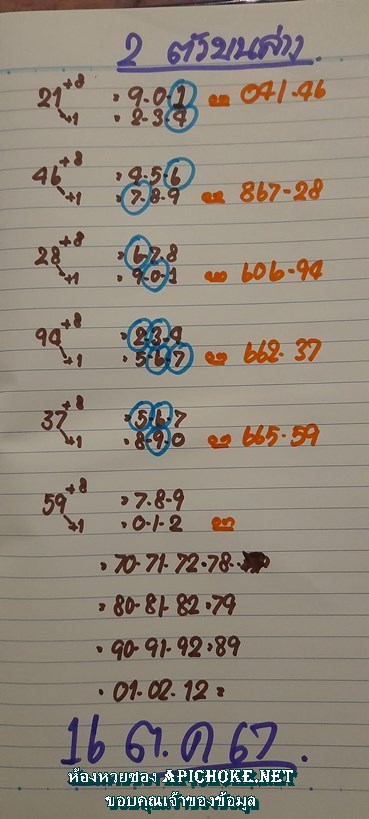 2 ตัวบนล่าง
21 +8 → 9-0-1 041-46
→+1 → 2-3-4
46 +8 → 4-5-6
→+1 → 7-8-9 867-28
28 +8 → 6-7-8
→+1 → 9-0-1 606-94
94 +8 → 2-3-4
→+1 → 5-6-7 662-37
37 +8 → 5-6-7
→+1 → 8-9-0 665-59
59 +8 → 7-8-9
→+1 → 0-1-2
70-71-72-78-
80-81-82-79
90-91-92-89
01-02-12=
16 ต.ค 67
ห้องหวยซอง APICHOKE.NET
ขอบคุณเจ้าของข้อมูล